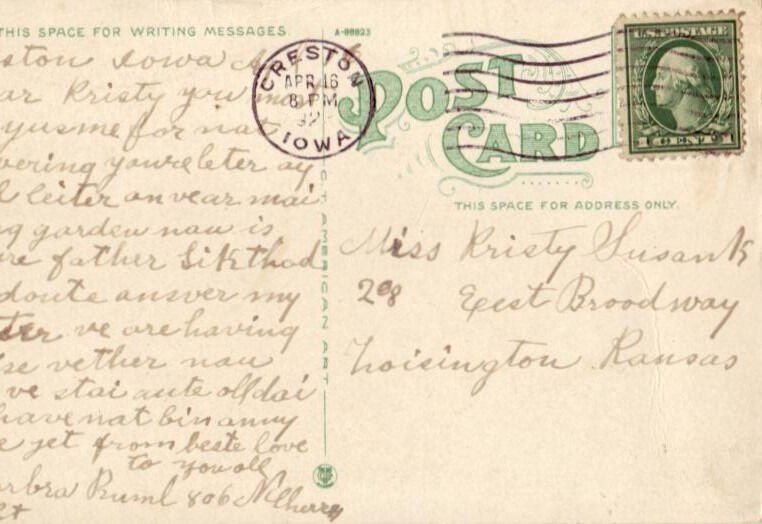 THIS SPACE FOR WRITING MESSAGES.
A-00823
eston Iowa
ar Kristy you may
yusme for nat
vering youre leter ay
l leiter an vear mai
ng garden nau is
re father Sik thad
doute answer my
ter ve are having
ise vether nau
ve stai aute oll dai
have nat bin anny
e yet from beste love
to you oll
arbra Ruml 806 N Cherry
st
CRESTON
APR 16
8 PM
192
IOWA
POST
CARD
U.S. POSTAGE
1 CENT 1
THIS SPACE FOR ADDRESS ONLY.
AMERICAN ART
Miss Kristy Susank
208 Eest Broodway
Hoisington Kansas